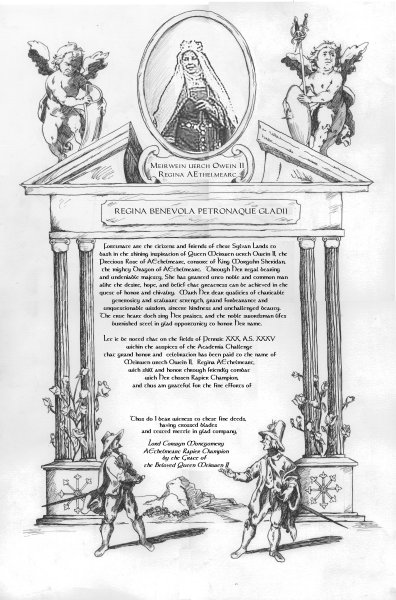 MEIRWEIN UERCH OWEIN II
REGINA AETHELMEARC
REGINA BENEVOLA PETRONAQUE GLADII
Fortunate are the citizens and friends of these Sylvan Lands to
bask in the shining inspiration of Queen Meirwen uerch Owein II, the
Precious Rose of AEthelmearc, consort of King Morguhn Sheridan,
the mighty Dragon of AEthelmearc. Through Her regal bearing
and undeniable majesty, She has granted unto noble and common man
alike the desire, hope, and belief that greatness can be achieved in the
quest of honor and chivalry. Much Her dear qualities of charitable
generosity and stalwart strength, grand forbearance and
unquestionable wisdom, sincere kindness and unchallenged beauty.
The true heart doth sing Her praises, and the noble swordsman lifts
burnished steel in glad opportunity to honor Her name.
Let it be noted that on the fields of Pennsic XXX, A.S. XXXV
within the auspices of the Academia Challenge
that grand honor and celebration has been paid to the name of
Meirwen uerch Owein II, Regina AEthelmearc,
with skill and honor through friendly combat
with Her chosen Rapier Champion,
and thus am grateful for the fine efforts of
Thus do I bear witness to these fine deeds,
having crossed blades
and tested mettle in glad company,
Lord Conwyn Montgomery
AEthelmearc Rapier Champion
by the Grace of
the Beloved Queen Meirwen II